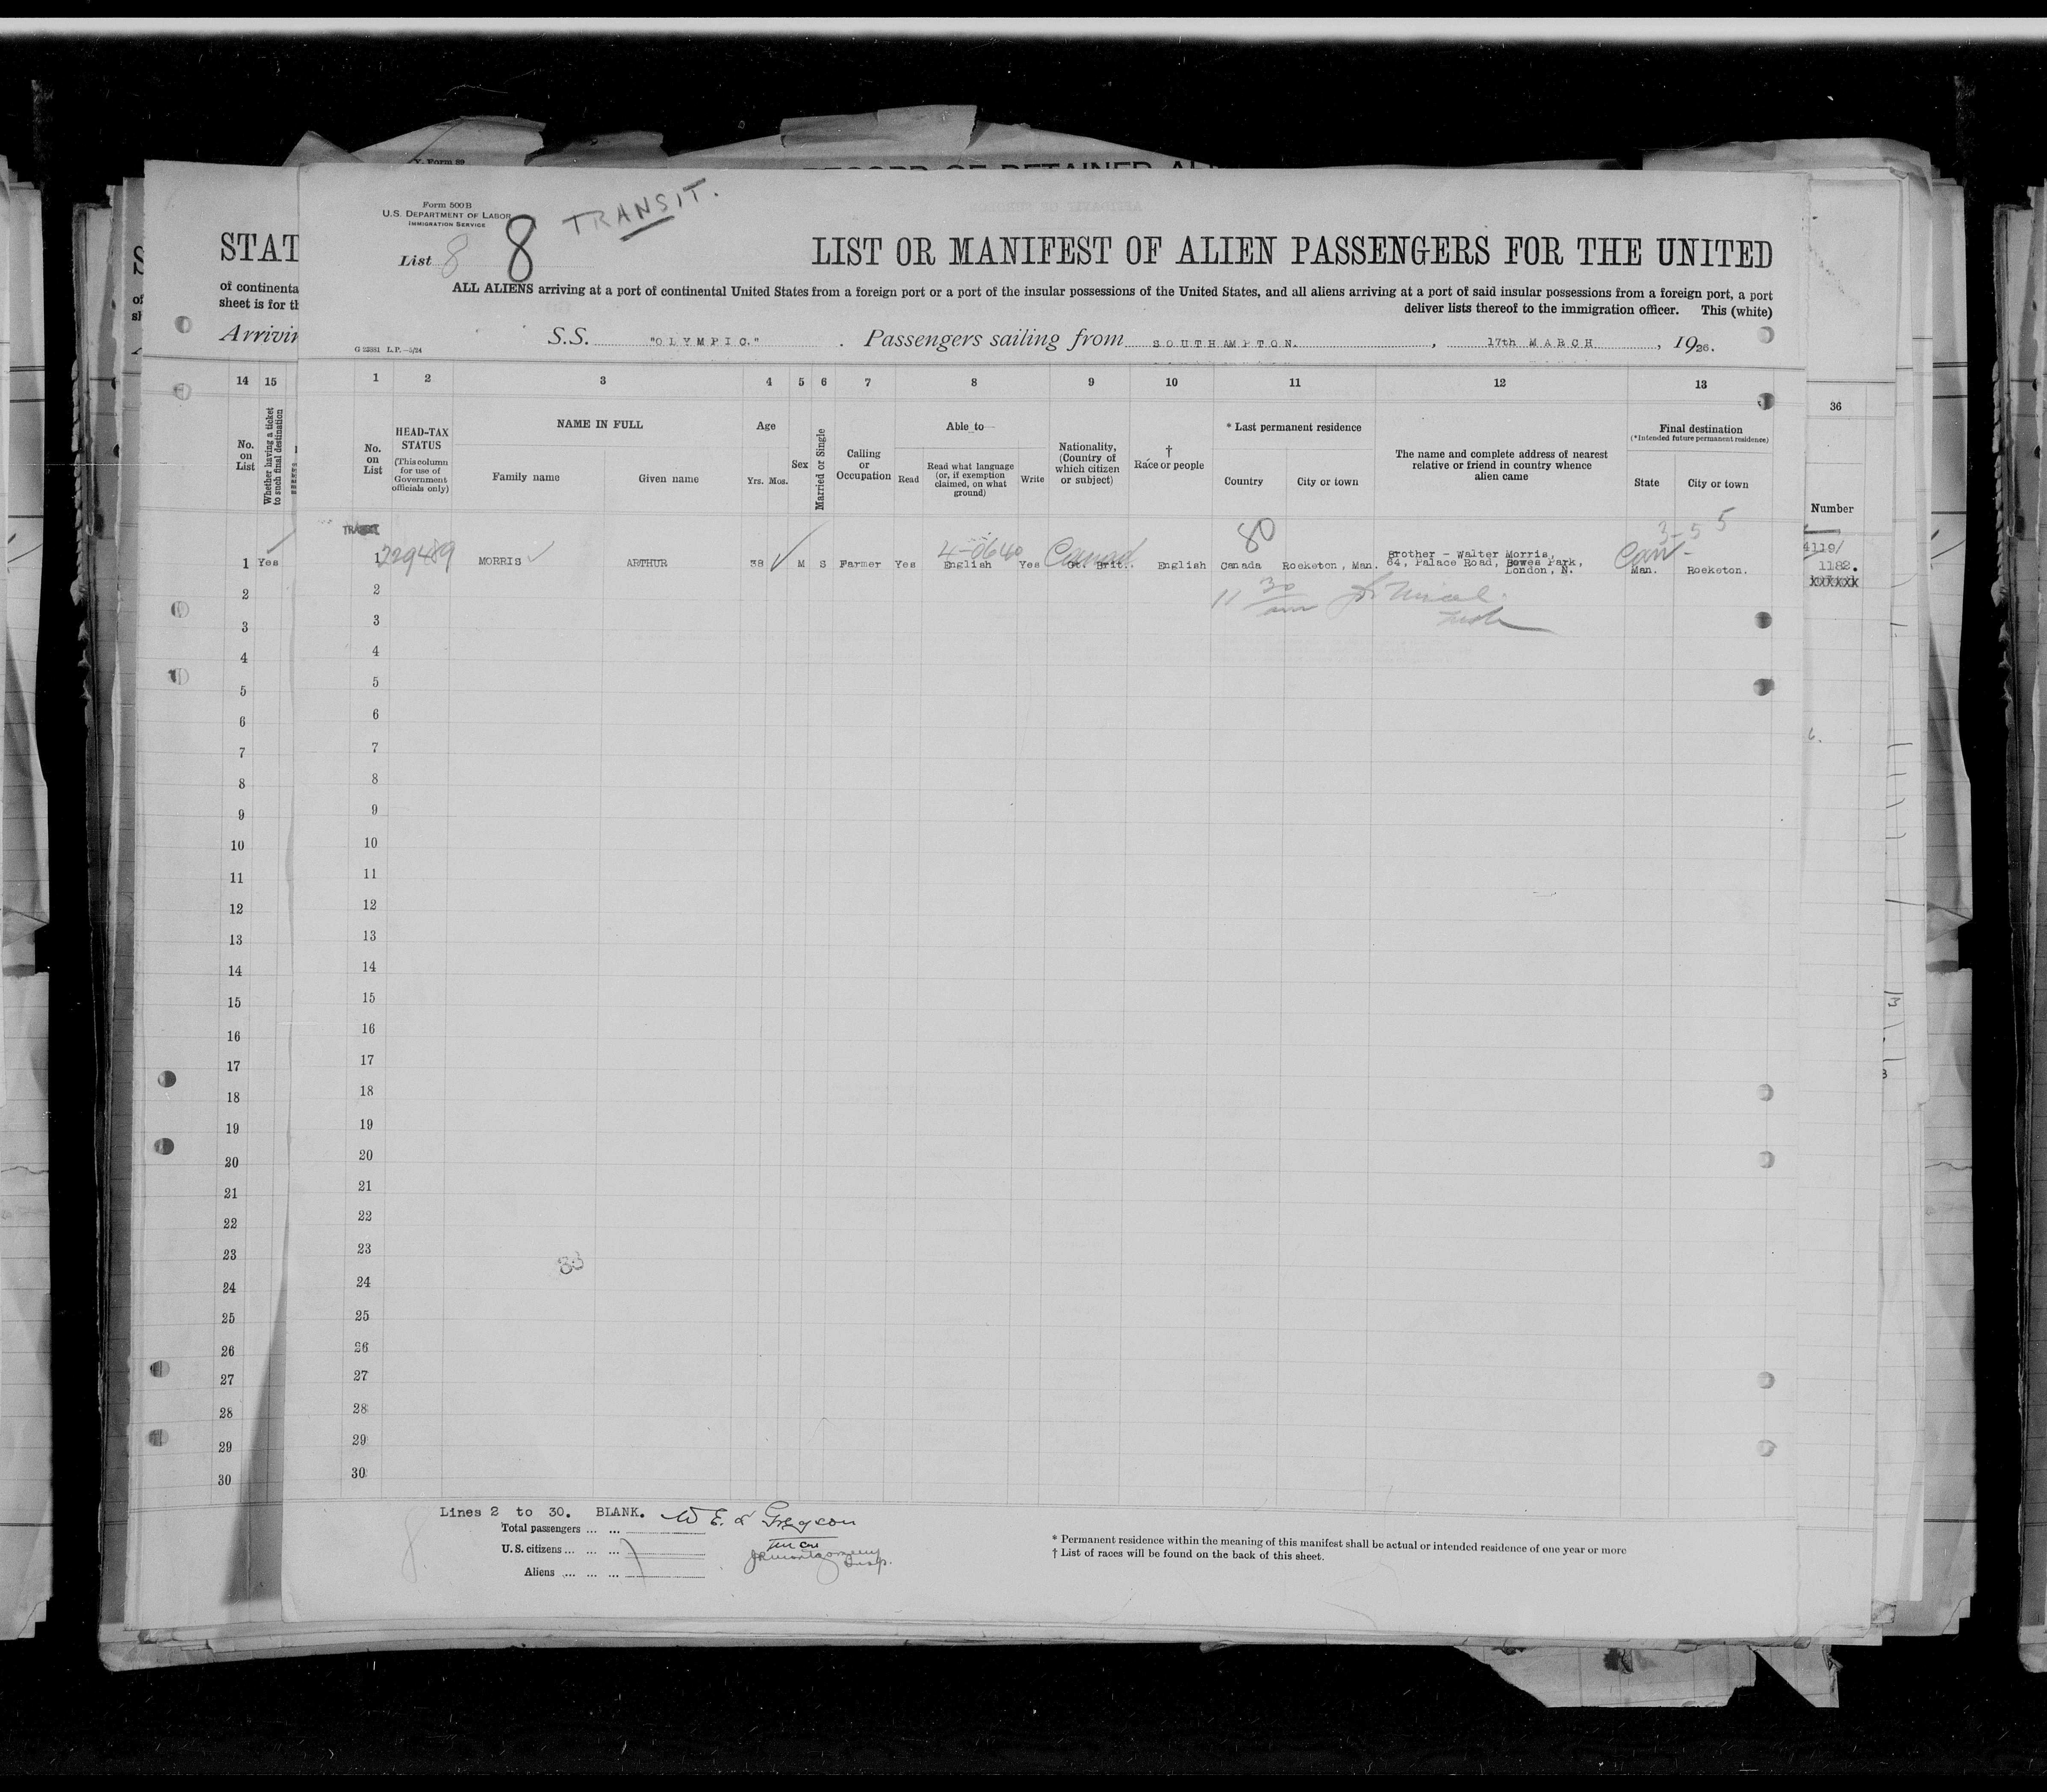 Form 500B
U.S. DEPARTMENT OF LABOR
IMMIGRATION SERVICE
TRANSIT.
List 8 8
STAT
LIST OR MANIFEST OF ALIEN PASSENGERS FOR THE UNITED
of continenta
sheet is for th
ALL ALIENS arriving at a port of continental United States from a foreign port or a port of the insular possessions of the United States, and all aliens arriving at a port of said insular possessions from a foreign port, a port
deliver lists thereof to the immigration officer. This (white)
Arrivin
S.S. "OLYMPIC." . Passengers sailing from SOUTHAMPTON. , 17th MARCH , 1926.
G 22881 L.P.—5/24
14 15 1 2 3 4 5 6 7 8 9 10 11 12 13 36
No. on List
Whether having a ticket to such final destination
No. on List
HEAD-TAX STATUS
(This column for use of Government officials only)
NAME IN FULL
Family name
Given name
Age
Yrs. Mos.
Sex
Married or Single
Calling or Occupation
Able to
Read
Read what language (or, if exemption claimed, on what ground)
Write
Nationality, (Country of which citizen or subject)
† Race or people
* Last permanent residence
Country
City or town
The name and complete address of nearest relative or friend in country whence alien came
Final destination
(*Intended future permanent residence)
State
City or town
Number
80 3-5 5
1 Yes 1 229489 MORRIS ARTHUR 38 M S Farmer Yes English Yes Gt. Brit. English Canada Roeketon, Man. Brother - Walter Morris, 64, Palace Road, Bowes Park, London, N. Man. Roeketon. 4119/
1182.
xxxxxx
2 2
3 3
4 4
5 5
6 6
7 7
8 8
9 9
10 10
11 11
12 12
13 13
14 14
15 15
16 16
17 17
18 18
19 19
20 20
21 21
22 22
23 23
24 24
25 25
26 26
27 27
28 28
29 29
30 30
Lines 2 to 30. BLANK.
Total passengers ... ...
U.S. citizens ... ... ...
Aliens ... ... ...
* Permanent residence within the meaning of this manifest shall be actual or intended residence of one year or more
† List of races will be found on the back of this sheet.